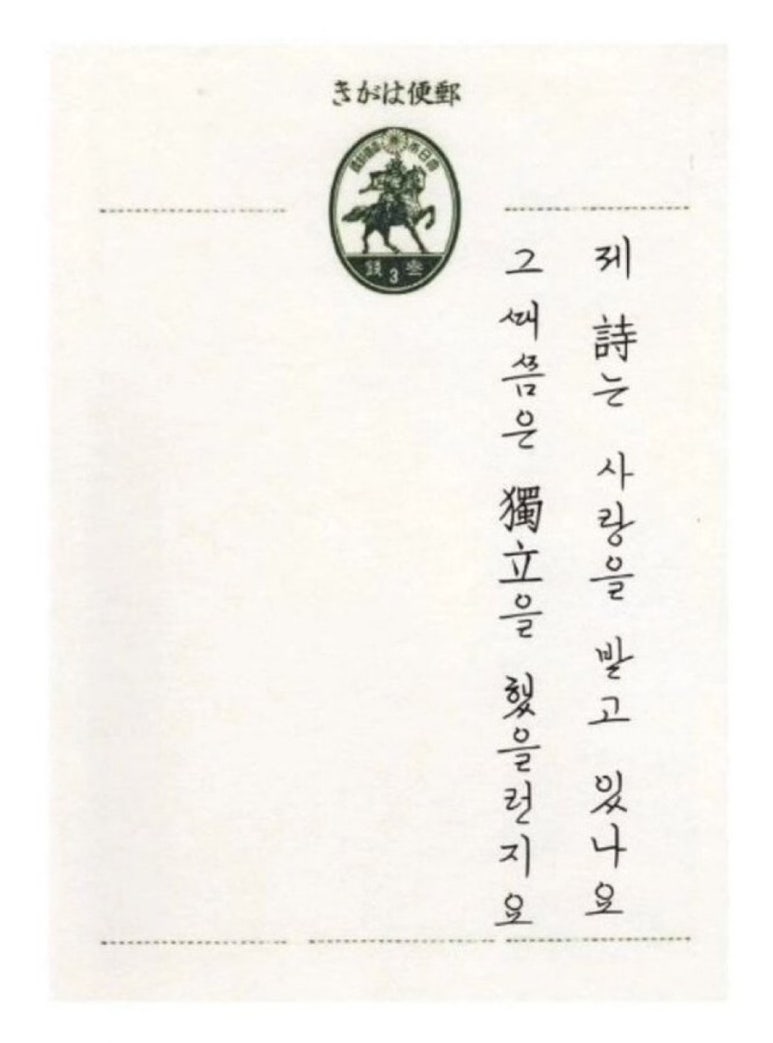 きがは便郵
國帝本日大
錢3叁
제 詩는 사랑을 받고 있나요
그 때쯤은 獨立을 했을런지요